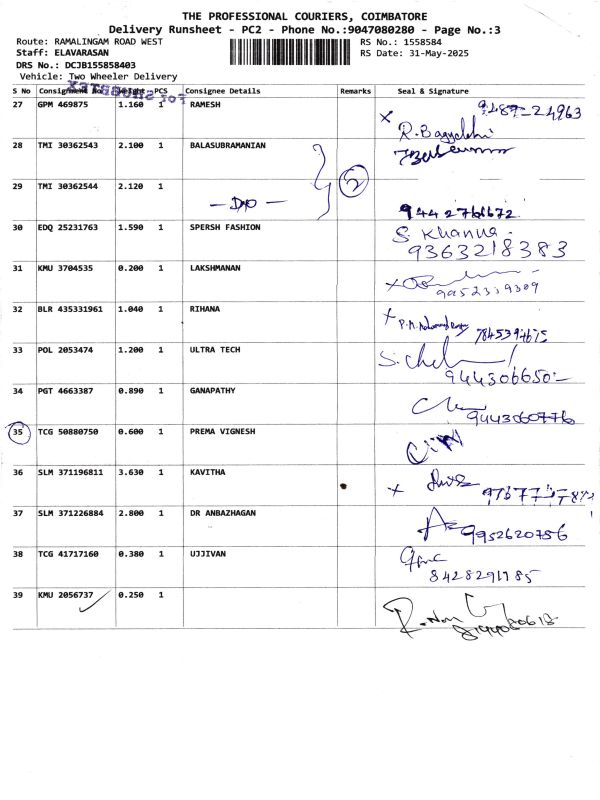 THE PROFESSIONAL COURIERS, COIMBATORE
Delivery Runsheet - PC2 - Phone No.:9047080280 - Page No.:3
Route: RAMALINGAM ROAD WEST RS No.: 1558584
Staff: ELAVARASAN RS Date: 31-May-2025
DRS No.: DCJB155858403
Vehicle: Two Wheeler Delivery
S No Consignment No Weight PCS Consignee Details Remarks Seal & Signature
27 GPM 469875 1.160 1 RAMESH x 9487-24963
28 TMI 30362543 2.100 1 BALASUBRAMANIAN
29 TMI 30362544 2.120 1 2
30 EDQ 25231763 1.590 1 SPERSH FASHION S. Khanna
9363218383
31 KMU 3704535 0.200 1 LAKSHMANAN x
9952339309
32 BLR 435331961 1.040 1 RIHANA x
33 POL 2053474 1.200 1 ULTRA TECH
34 PGT 4663387 0.890 1 GANAPATHY
9443060776
35 TCG 50880750 0.600 1 PREMA VIGNESH
36 SLM 371196811 3.630 1 KAVITHA x
37 SLM 371226884 2.800 1 DR ANBAZHAGAN 9952620756
38 TCG 41717160 0.380 1 UJJIVAN
8428291785
39 KMU 2056737 0.250 1